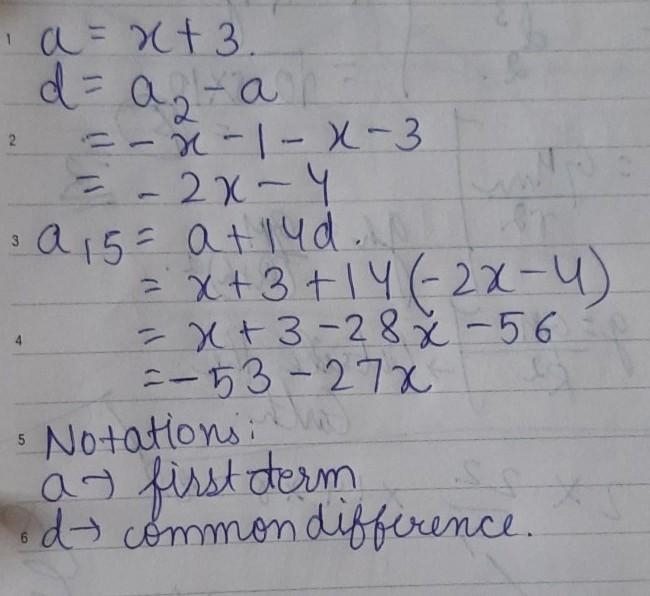 1 a = x + 3.
d = a₂ - a
2 = - x - 1 - x - 3
= - 2x - 4
3 a₁₅ = a + 14d.
= x + 3 + 14(-2x - 4)
4 = x + 3 - 28x - 56
= - 53 - 27x
5 Notations:
a → first term
6 d → common difference.